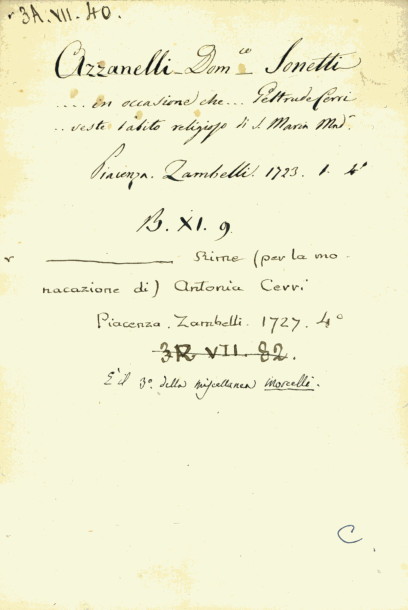 3A.VII.40.
Azzanelli Dom.co Sonetti
.... en occasione che... Geltrude Cerri
.. veste l'abito religioso di S. Maria Mad.a
Piacenza. Zambelli. 1723. 1. 4º
B. XI. 9.
——— Rime (per la mo-
nacazione di) Antonia Cerri
Piacenza. Zambelli. 1727. 4º
3R VII. 82.
È il 3º. della miscellanea Morcelli.
C